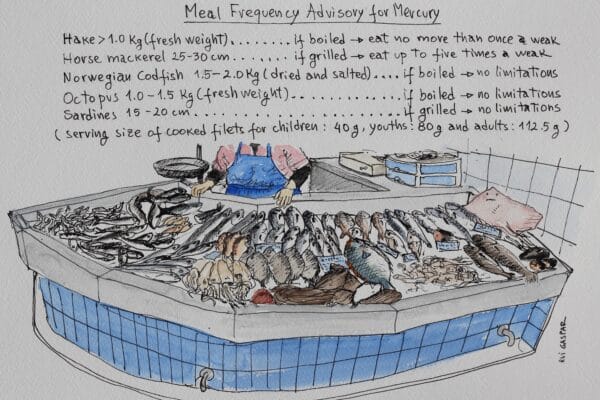 Meal Frequency Advisory for Mercury
Hake > 1.0 Kg (fresh weight) ....... if boiled → eat no more than once a weak
Horse mackerel 25-30 cm ....... if grilled → eat up to five times a weak
Norwegian Codfish 1.5-2.0 Kg (dried and salted) .... if boiled → no limitations
Octopus 1.0-1.5 Kg (fresh weight) ............... if boiled → no limitations
Sardines 15-20 cm ........................ if grilled → no limitations
(serving size of cooked filets for children: 40g, youths: 80g and adults: 112.5g)
RUI GASPAR